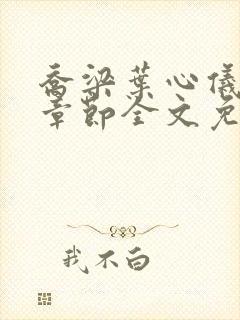 乔梁叶心仪
章节全文免
我不白